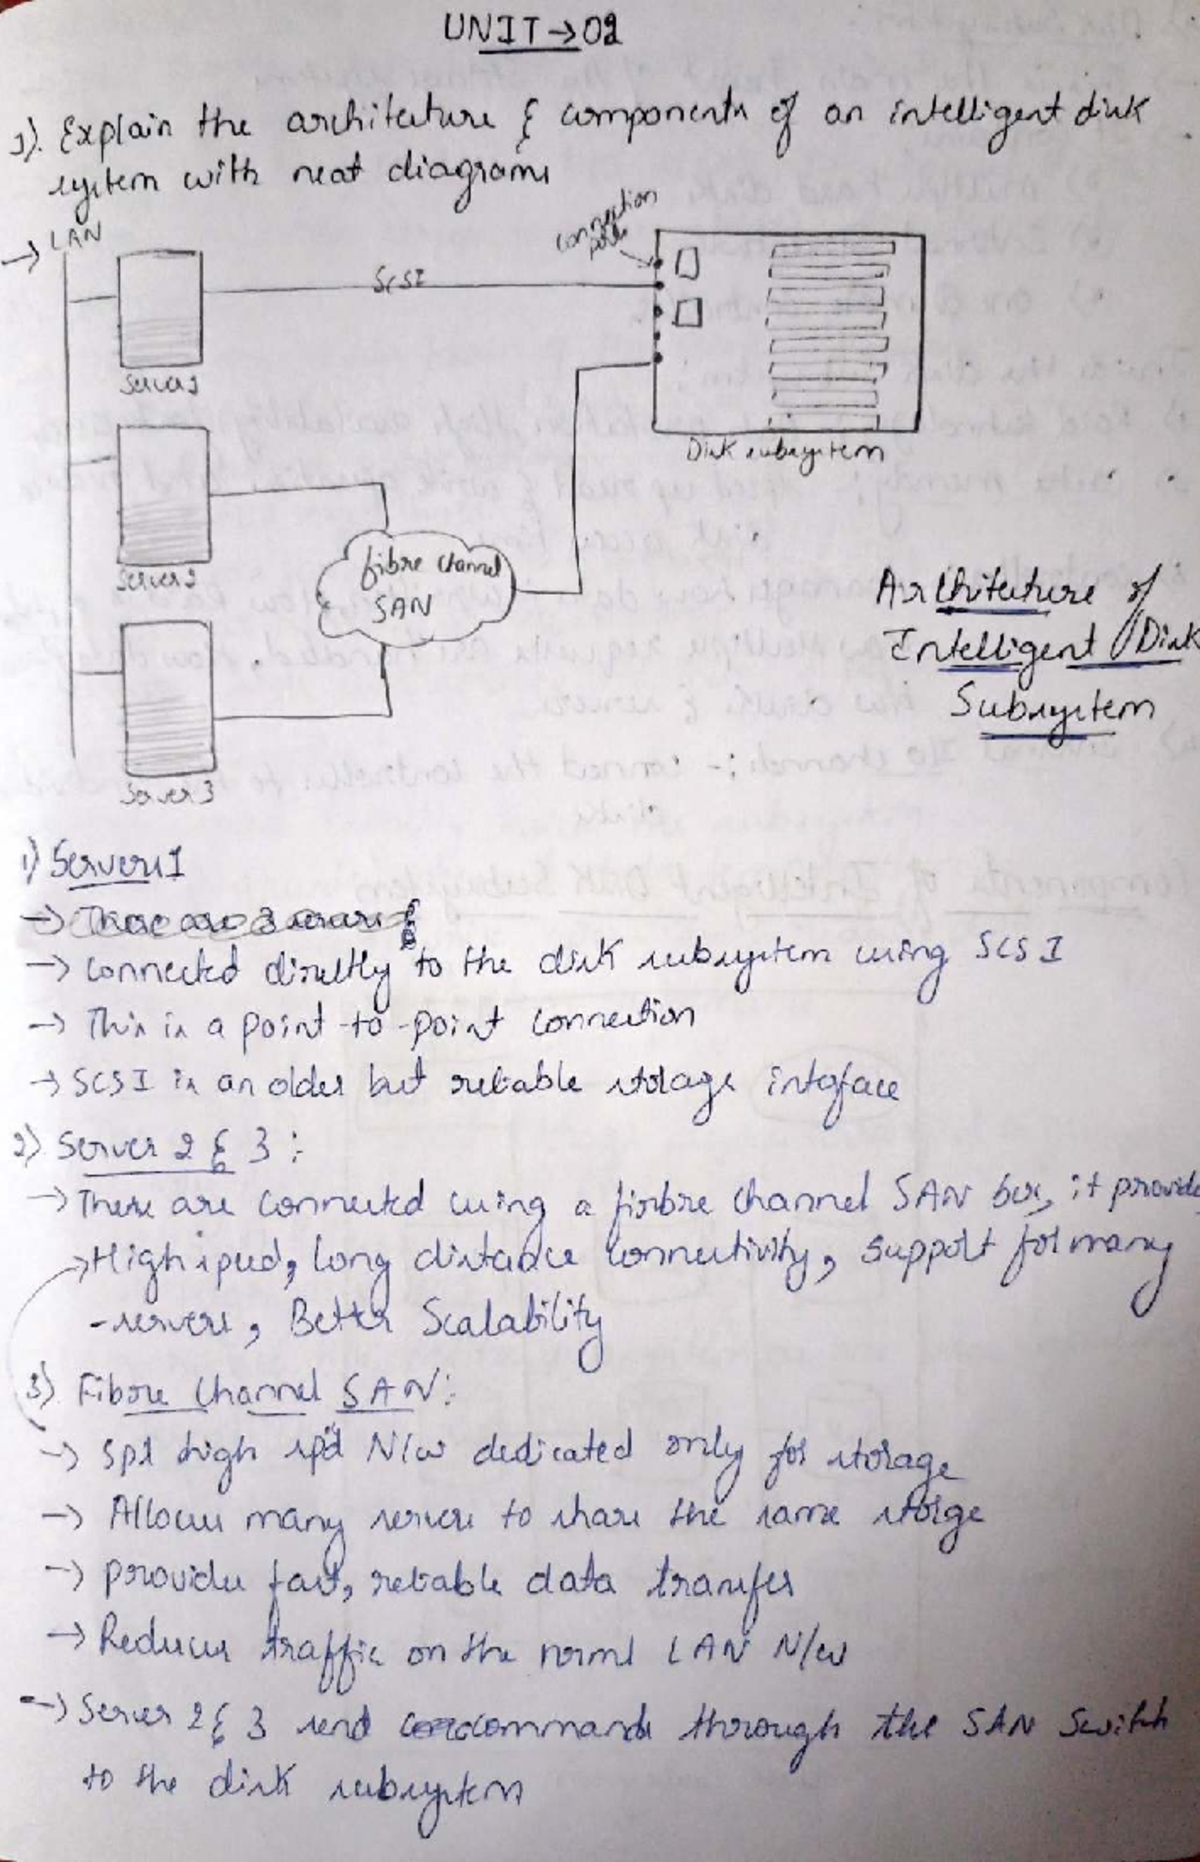 UNIT → 02
1). Explain the architecture & components of an intelligent disk
system with neat diagrams
→ LAN
connection
ports
SCSI
Server 1
Disk subsystem
Server 2
fibre channel
SAN
Server 3
Architecture of
Intelligent Disk
Subsystem
1) Server 1
→ connected directly to the disk subsystem using SCSI
→ This is a point-to-point connection
→ SCSI is an older but reliable storage interface
2) Server 2 & 3 :
→ There are connected using a firbre channel SAN box, it provide
→ High speed, long distance connectivity, support for many
-servers, Better Scalability
3) Fibre Channel SAN:
→ Spl high spd N/w dedicated only for storage
→ Allows many servers to share the same storge
→ provides fast, reliable data transfer
→ Reduces traffic on the norml LAN N/w
→ Server 2 & 3 send commands through the SAN Switch
to the disk subsystem